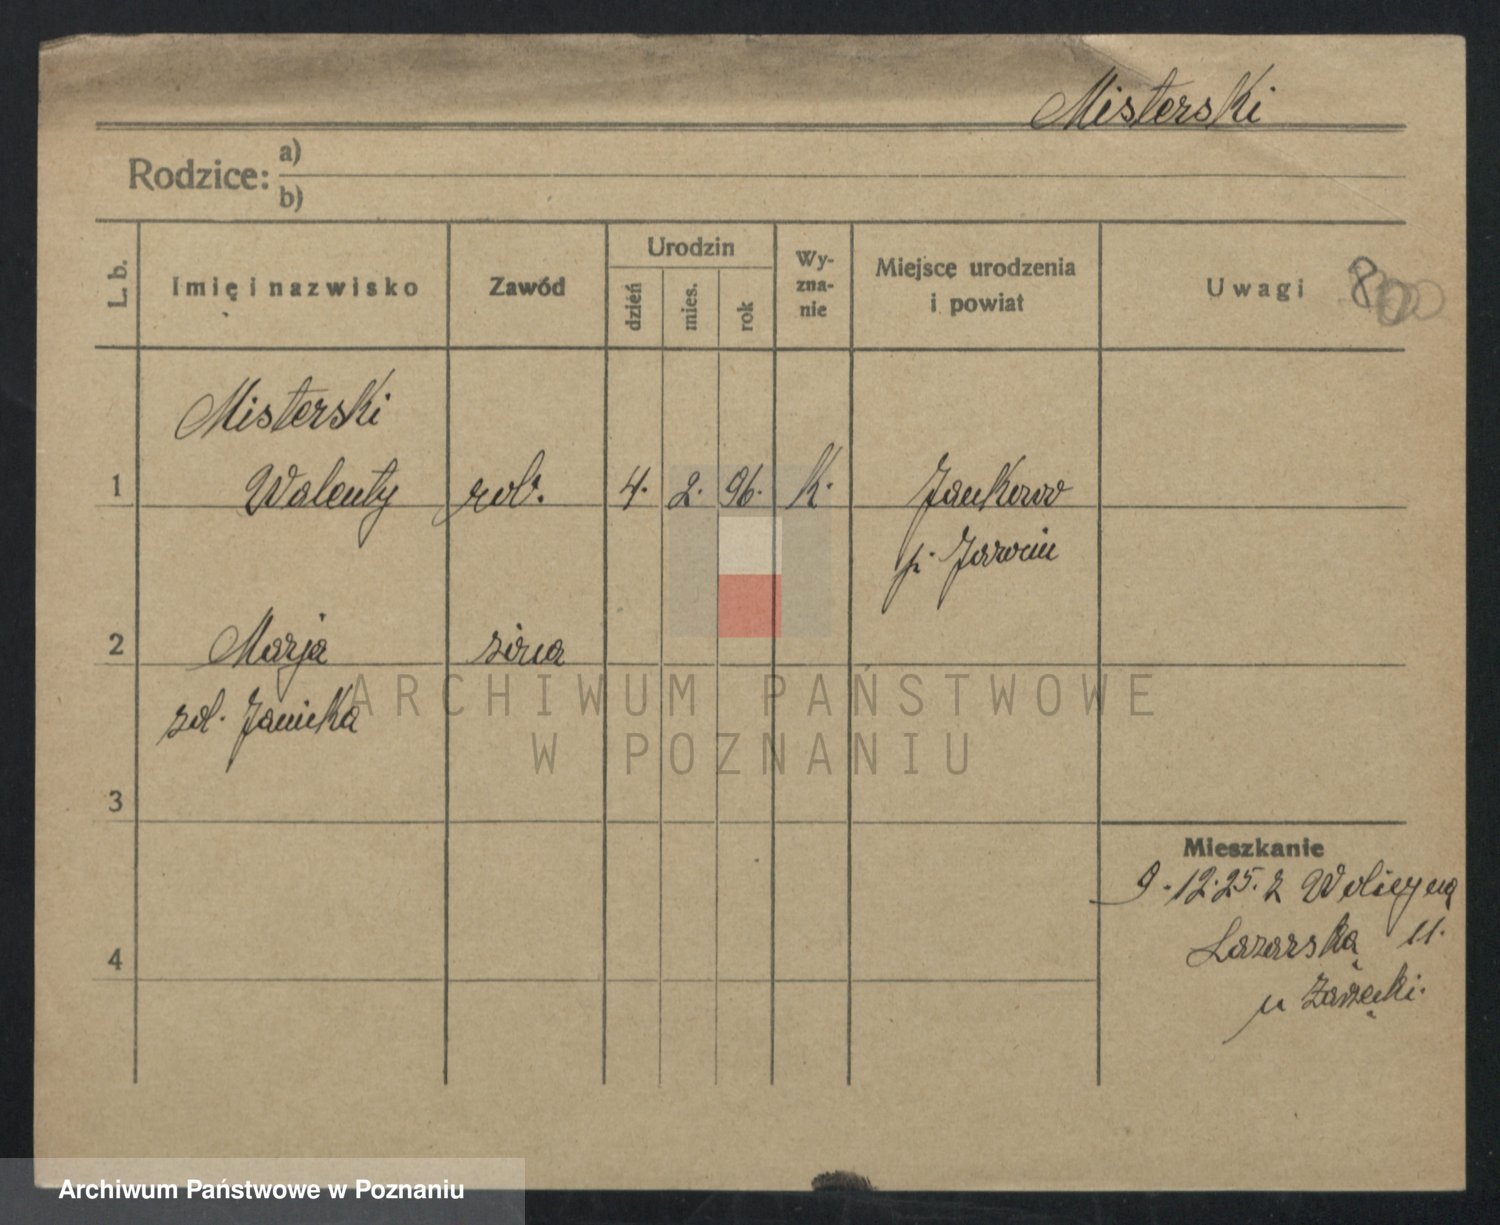 Misterski
Rodzice: a)
b)
L. b. Imię i nazwisko Zawód Urodzin dzień mies. rok Wy-zna-nie Miejsce urodzenia i powiat Uwagi
Misterski
1 Walenty rob. 4. 2. 96. K. Jankowo
p. Jarocin
2 Marja
zd. Janicka
3
Mieszkanie
9.12.25. z
Łazarska 11.
4
u
ARCHIWUM PAŃSTWOWE
W POZNANIU
Archiwum Państwowe w Poznaniu